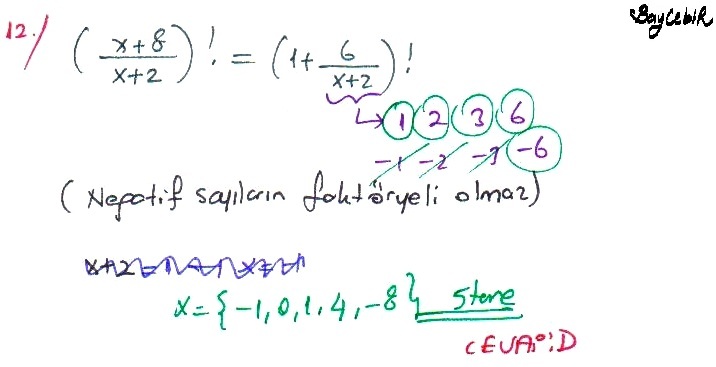 BayCebiR
12./ ( x+8 / x+2 )! = ( 1 + 6 / x+2 )!
1 2 3 6
-1 -2 -3 -6
( Negatif sayıların faktöryeli olmaz)
x+2
x = {-1, 0, 1, 4, -8} 5 tane
CEVAP: D